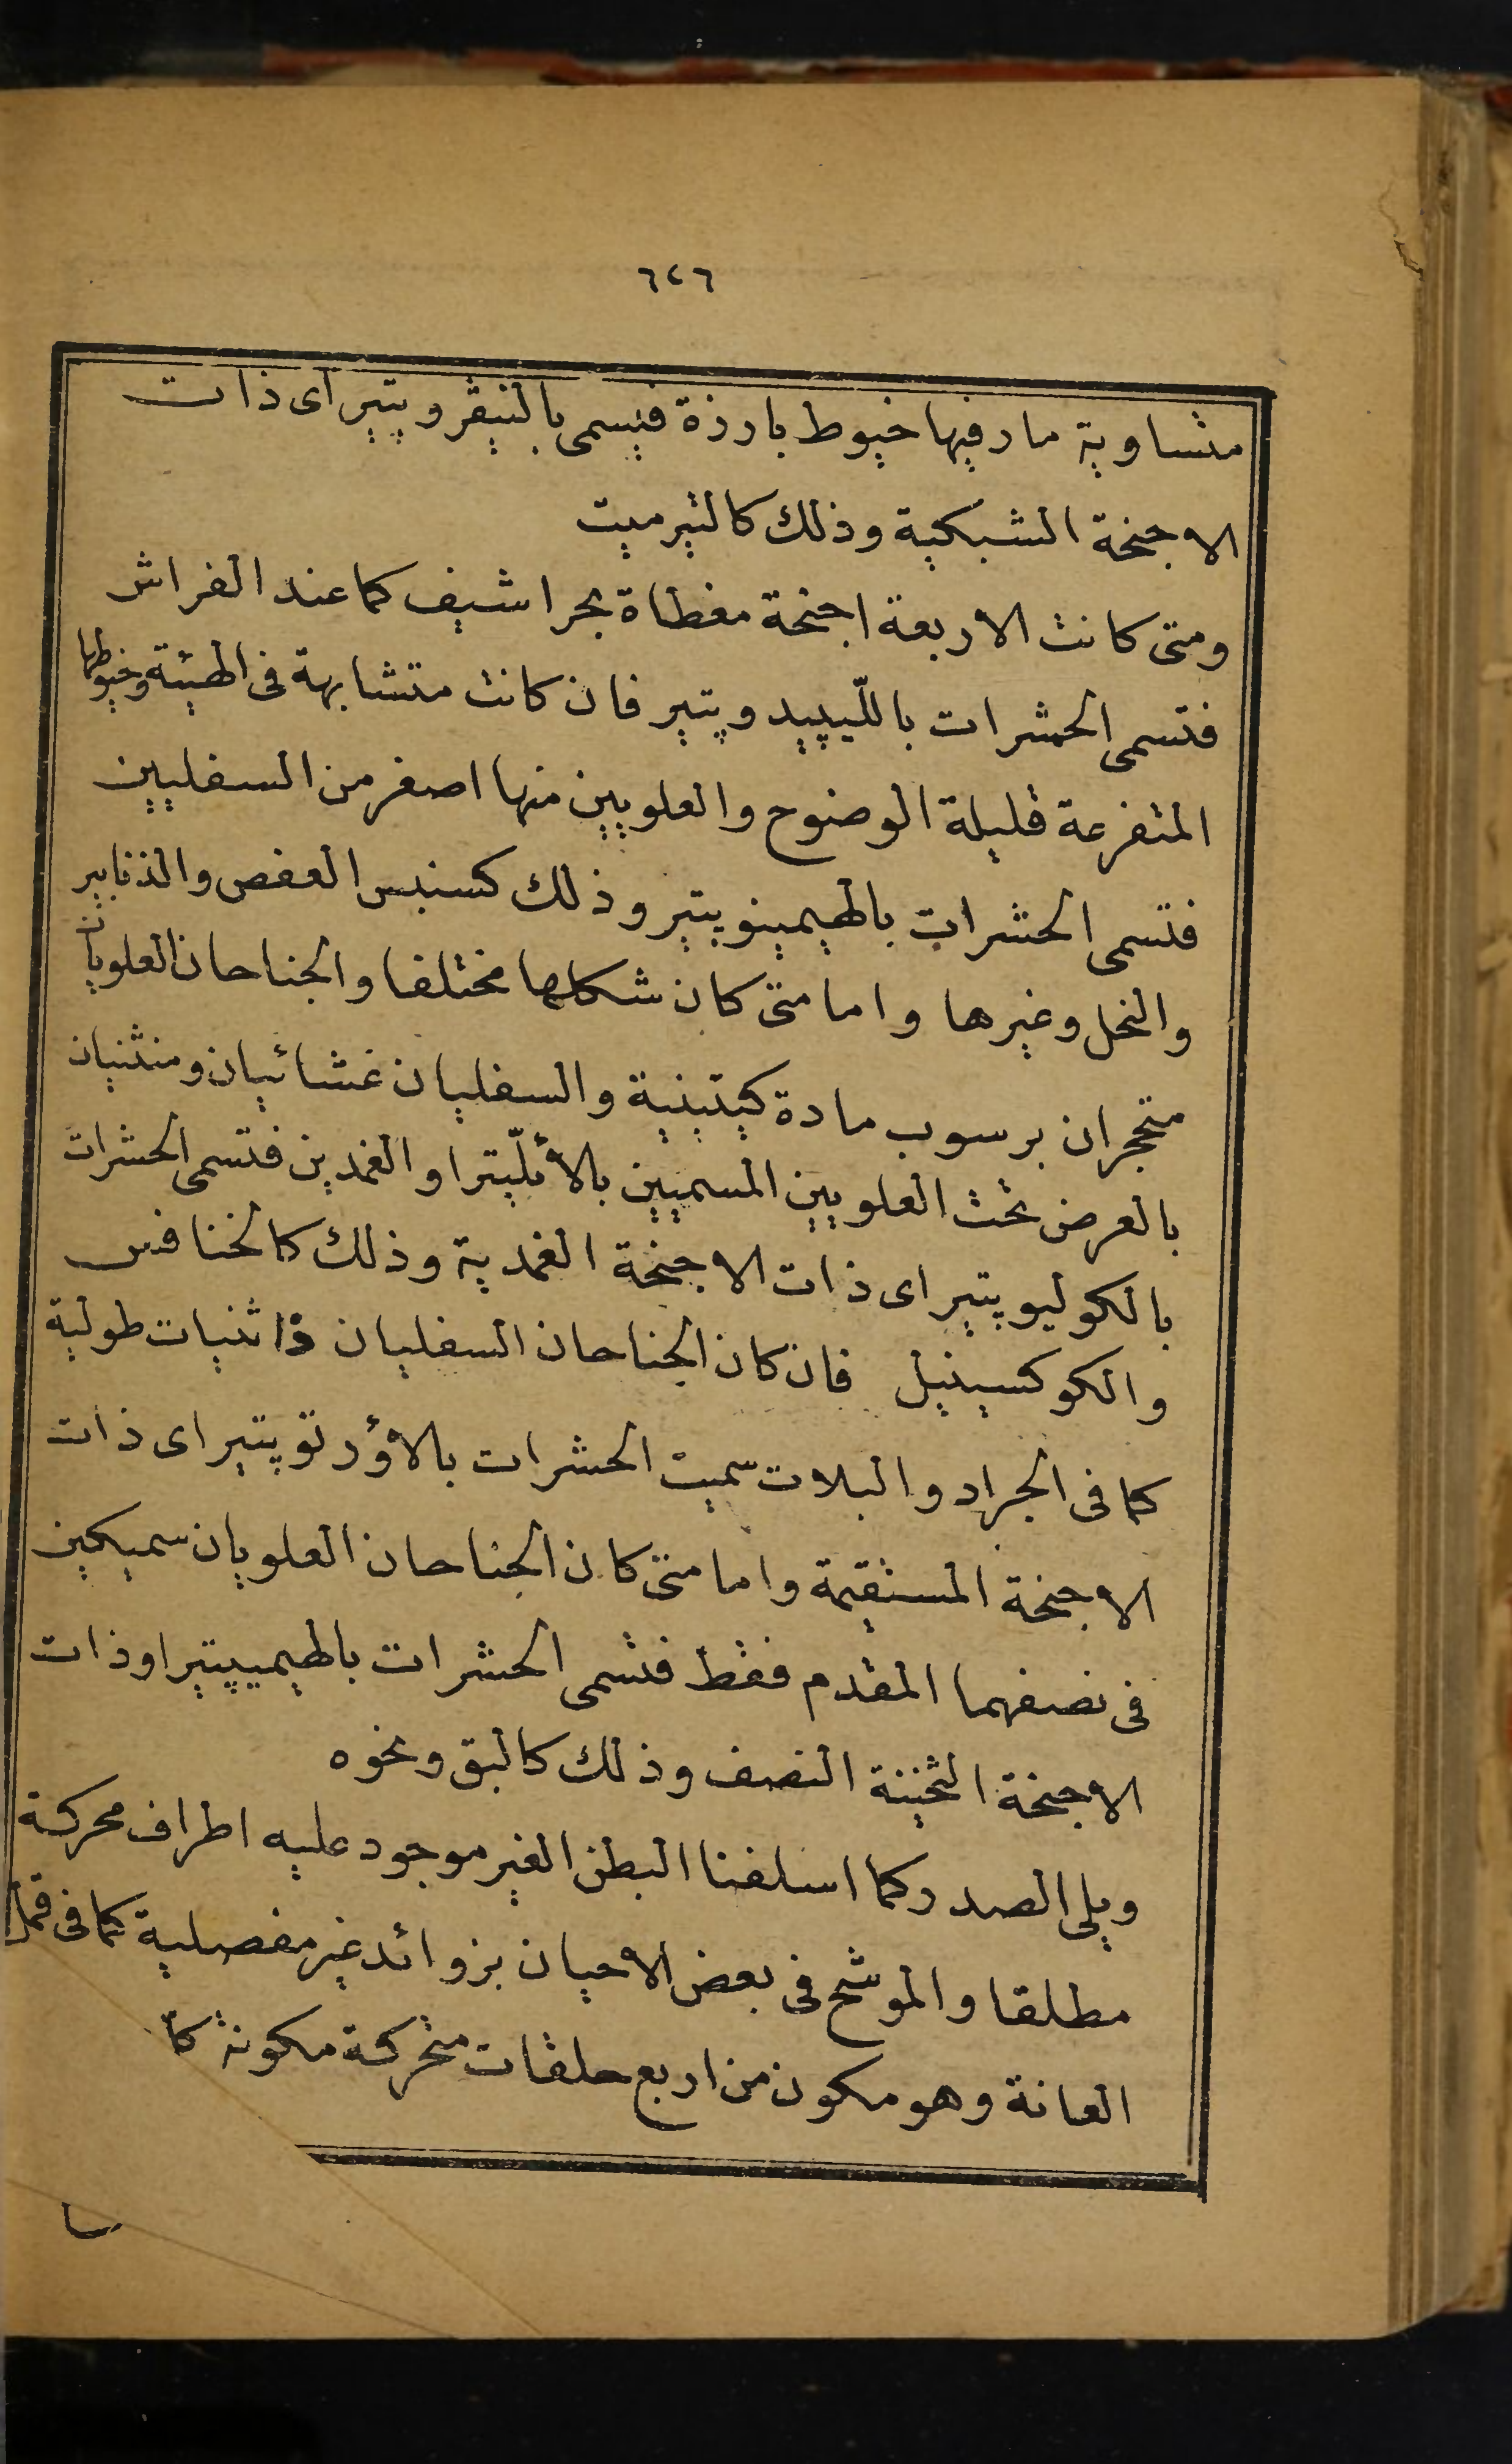 ٦٢٦
متساوية مار فيها خيوط بارزة فيسمى بالنيڤروپتير اى ذات
الاجنحة الشبكية وذلك كالتيرميت
ومتى كانت الاربعة اجنحة مغطاة بحراشيف كما عند الفراش
فتسمى الحشرات باللّيپيدوپتير فان كانت متشابهة فى الهيئة وخيوطها
المتفرعة قليلة الوضوح والعلويين منها اصغر من السفليين
فتسمى الحشرات بالهيمينوپتير وذلك كسنبس العفص والذنابير
والنحل وغيرها واما متى كان شكلها مختلفا والجناحان العلويان
متحجران برسوب مادة كيتينية والسفليان غشائيان ومنثنيان
بالعرض تحت العلويين المسميين بالأيلّيترا والغمدين فتسمى الحشرات
بالكوليوپتير اى ذات الاجنحة الغمدية وذلك كالخنافس
والكوكسينيل فان كان الجناحان السفليان ذا ثنيات طولية
كما فى الجراد والبلات سميت الحشرات بالأورتوپتير اى ذات
الاجنحة المستقيمة واما متى كان الجناحان العلويان سميكين
فى نصفهما المقدم فقط فتسمى الحشرات بالهيميپتير او ذات
الاجنحة الثخينة النصف وذلك كالبق ونحوه
ويلى الصدر كما اسلفنا البطن الغير موجود عليه اطراف محركة
مطلقا والموشح فى بعض الاحيان بزوائد غير مفصلية كما فى قمل
العانة وهو مكون من اربع حلقات متحركة مكونة كا